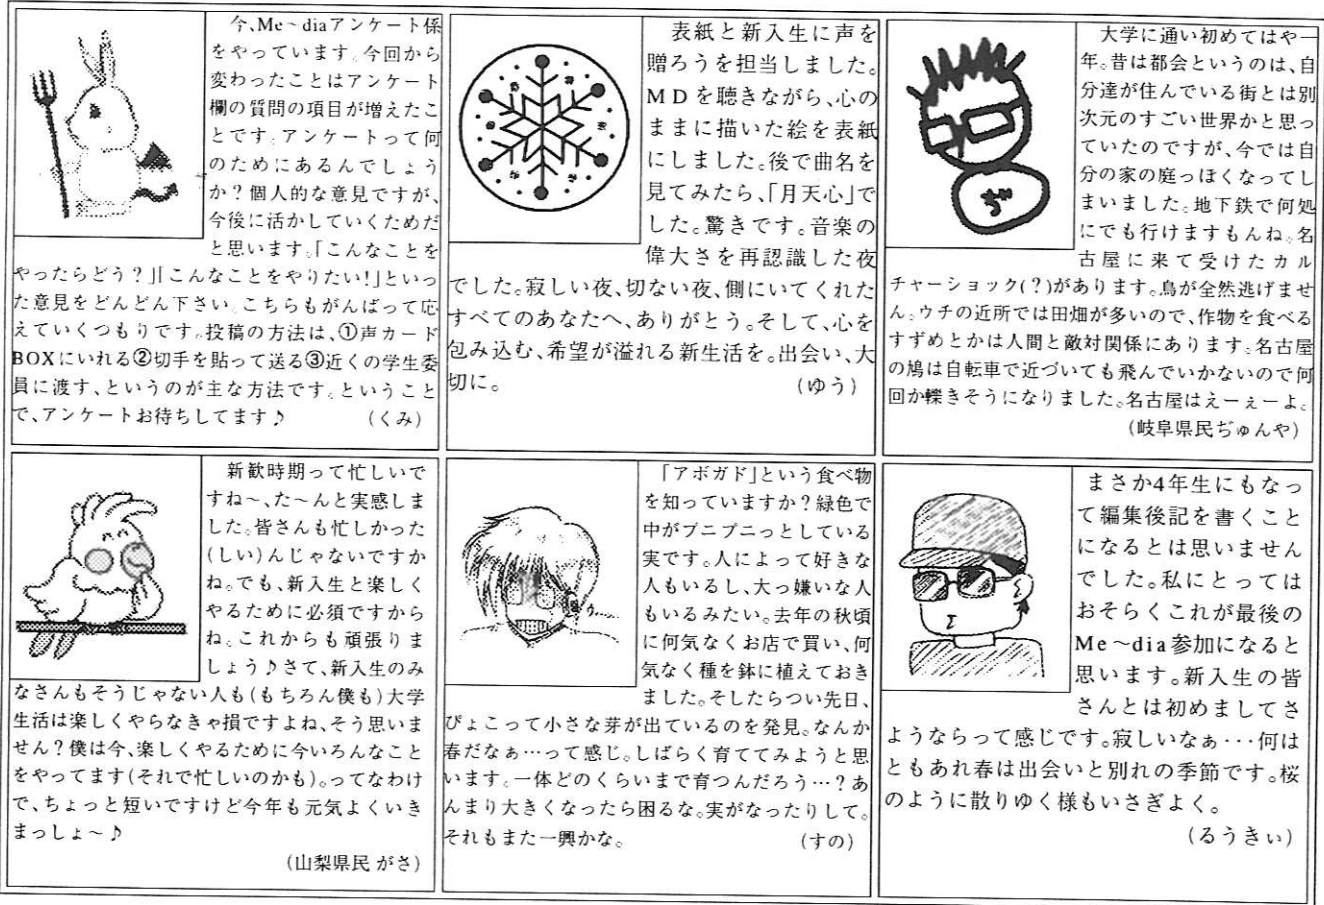 今、Me～diaアンケート係
をやっています。今回から
変わったことはアンケート
欄の質問の項目が増えたこ
とです。アンケートって何
のためにあるんでしょう
か？個人的な意見ですが、
今後に活かしていくためだ
と思います。「こんなことを
やったらどう？」「こんなことをやりたい!」といっ
た意見をどんどん下さい。こちらもがんばって応
えていくつもりです。投稿の方法は、①声カード
BOXにいれる②切手を貼って送る③近くの学生委
員に渡す、というのが主な方法です。ということ
で、アンケートお待ちしてます♪
(くみ)
表紙と新入生に声を
贈ろうを担当しました。
MDを聴きながら、心の
ままに描いた絵を表紙
にしました。後で曲名を
見てみたら、「月天心」で
した。驚きです。音楽の
偉大さを再認識した夜
でした。寂しい夜、切ない夜、側にいてくれた
すべてのあなたへ、ありがとう。そして、心を
包み込む、希望が溢れる新生活を。出会い、大
切に。
(ゆう)
ぢ
大学に通い初めてはや一
年。昔は都会というのは、自
分達が住んでいる街とは別
次元のすごい世界かと思っ
ていたのですが、今では自
分の家の庭っぽくなってし
まいました。地下鉄で何処
にでも行けますもんね。名
古屋に来て受けたカル
チャーショック(？)があります。鳥が全然逃げませ
ん。ウチの近所では田畑が多いので、作物を食べる
すずめとかは人間と敵対関係にあります。名古屋
の鳩は自転車で近づいても飛んでいかないので何
回か轢きそうになりました。名古屋はえーぇーよ。
(岐阜県民ぢゅんや)
新歓時期って忙しいで
すね～、た～んと実感しま
した。皆さんも忙しかった
(しい)んじゃないですか
ね。でも、新入生と楽しく
やるために必須ですから
ね。これからも頑張りま
しょう♪さて、新入生のみ
なさんもそうじゃない人も(もちろん僕も)大学
生活は楽しくやらなきゃ損ですよね、そう思いま
せん？僕は今、楽しくやるために今いろんなこと
をやってます(それで忙しいのかも)。ってなわけ
で、ちょっと短いですけど今年も元気よくいき
まっしょ～♪
(山梨県民 がさ)
「アボガド」という食べ物
を知っていますか？緑色で
中がブニブニっとしている
実です。人によって好きな
人もいるし、大っ嫌いな人
もいるみたい。去年の秋頃
に何気なくお店で買い、何
気なく種を鉢に植えておき
ました。そしたらつい先日、
ぴょこって小さな芽が出ているのを発見。なんか
春だなぁ…って感じ。しばらく育ててみようと思
います。一体どのくらいまで育つんだろう…？あ
んまり大きくなったら困るな。実がなったりして。
それもまた一興かな。
(すの)
まさか4年生にもなっ
て編集後記を書くこと
になるとは思いません
でした。私にとっては
おそらくこれが最後の
Me～dia参加になると
思います。新入生の皆
さんとは初めましてさ
ようならって感じです。寂しいなぁ・・・何は
ともあれ春は出会いと別れの季節です。桜
のように散りゆく様もいさぎよく。
(るうきぃ)